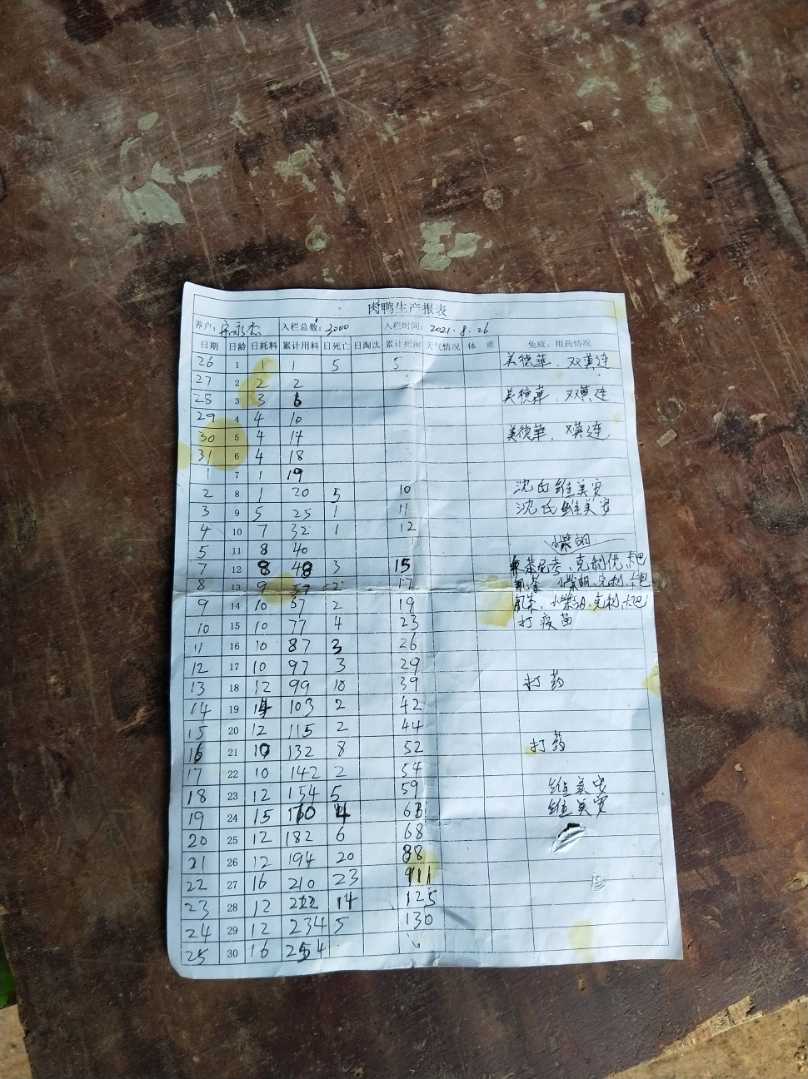 肉鸭生产报表
养户: 入栏总数: 3000 入栏时间: 2021.8.26
日期 日龄 日耗料 累计用料 日死亡 日淘汰 累计死淘 天气情况 体重 免疫、用药情况
26 1 1 1 5 5 美德华、双黄连
27 2 2 2
25 3 3 6 美德华、双黄连
29 4 4 10
30 5 4 14 美德华、双黄连
31 6 4 18
1 7 1 19
2 8 1 20 5 10 沈氏维美安
3 9 5 25 1 11 沈氏维美安
4 10 7 32 1 12
5 11 8 40
7 12 8 48 3 15
8 13 9 57 2 17
9 14 10 57 2 19
10 15 10 77 4 23 打疫苗
11 16 10 87 3 26
12 17 10 97 3 29
13 18 12 99 10 39 打药
14 19 14 103 2 42
15 20 12 115 2 44
16 21 10 132 8 52 打药
17 22 10 142 2 54
18 23 12 154 5 59 维美安
19 24 15 160 4 63 维美安
20 25 12 182 6 68
21 26 12 194 20 88
22 27 16 210 23 111
23 28 12 222 14 125
24 29 12 234 5 130
25 30 16 254